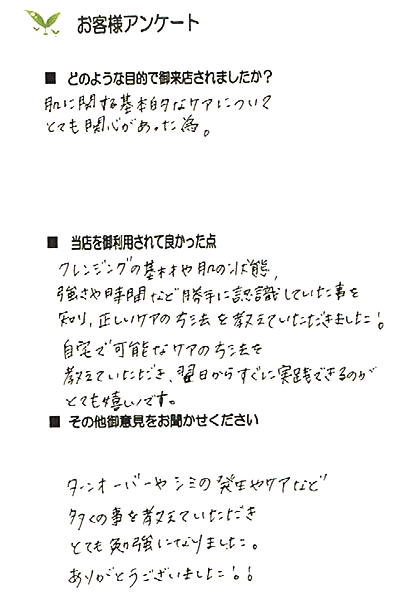 お客様アンケート
■ どのような目的で御来店されましたか?
肌に関する基本的なケアについて
とても関心があった為。
■ 当店を御利用されて良かった点
クレンジングの基本や肌の状態,
強さや時間など勝手に認識していた事を
知り、正しいケアの方法を教えていただきました!
自宅で可能なケアの方法を
教えていただき、翌日からすぐに実践できるのが
とても嬉しいです。
■ その他御意見をお聞かせください
ターンオーバーやシミの発生やケアなど
多くの事を教えていただき
とても勉強になりました。
ありがとうございました!!